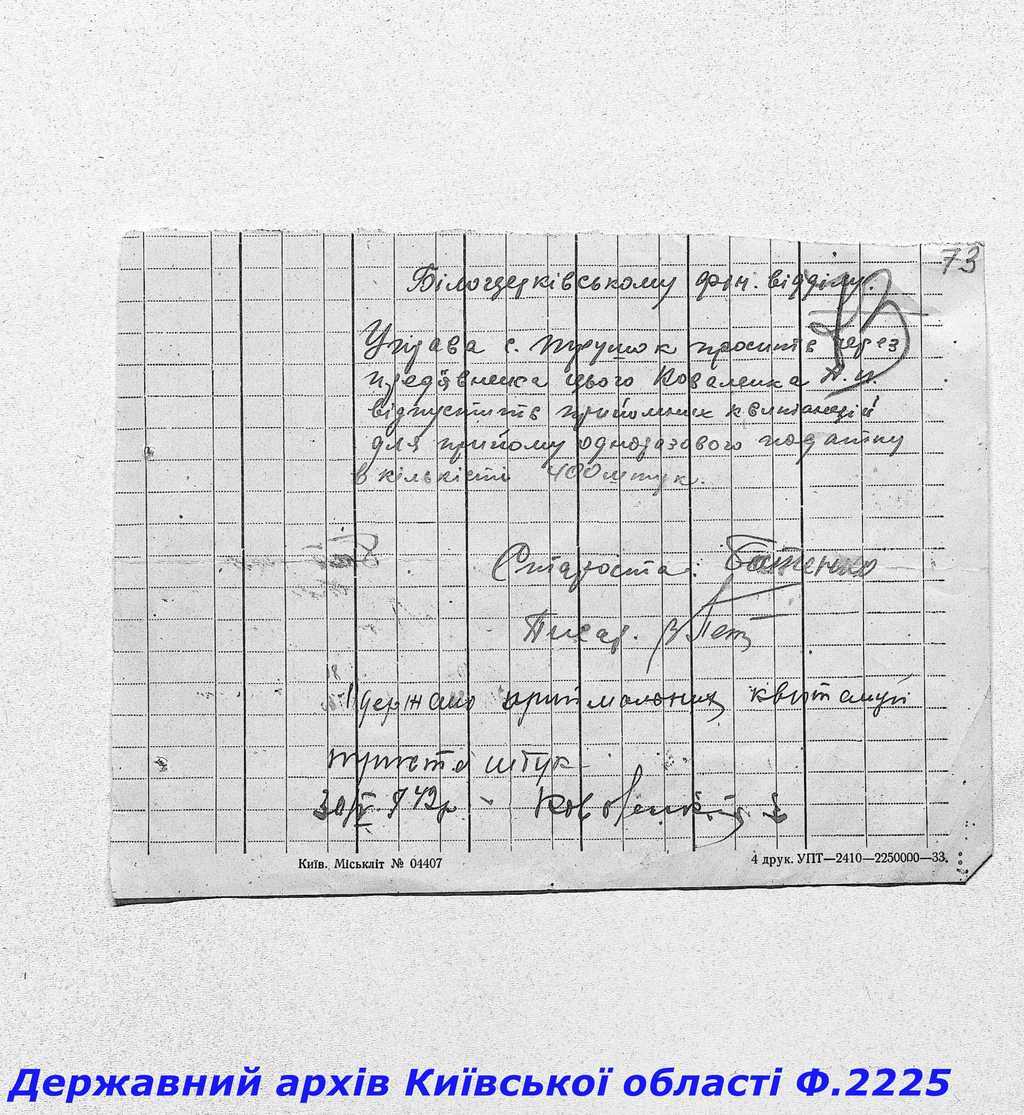 73
Білоцерківському фін. відділу.
Управа с. Трушок просить через
предʼявника цього Коваленка
відпустить прийомних квитанцій
для прийому одноразового податку
в кількісті 400 штук.
Староста: Батенко
Писар.
Одержано приймальних квитанцій
триста штук
Київ. Міськліт № 04407
4 друк. УПТ—2410—2250000—33.
Державний архів Київської області Ф.2225